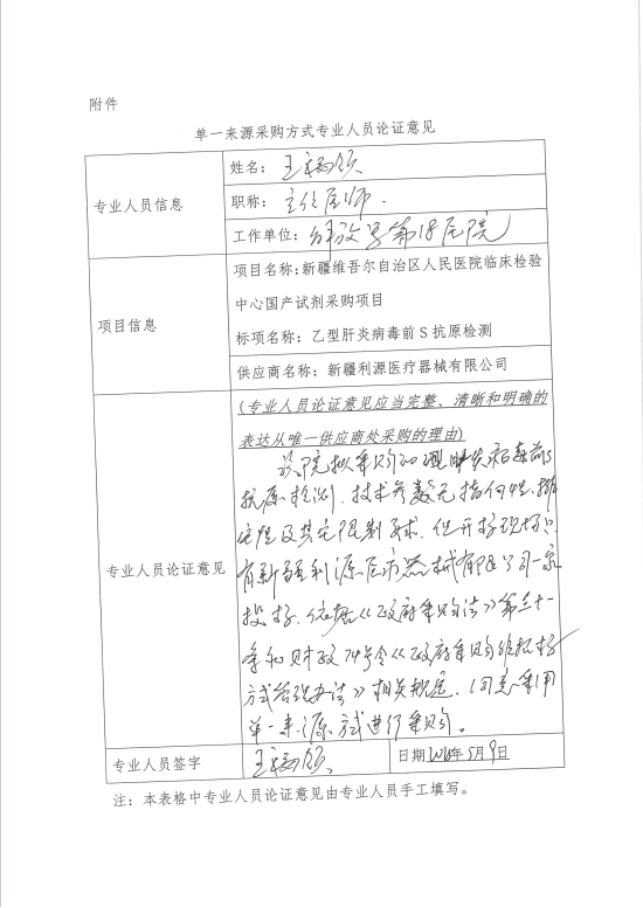 附件
单一来源采购方式专业人员论证意见
专业人员信息
姓名：王
职称：主任医师.
工作单位：解放军第18医院
项目信息
项目名称：新疆维吾尔自治区人民医院临床检验
中心国产试剂采购项目
标项名称：乙型肝炎病毒前 S 抗原检测
供应商名称：新疆利源医疗器械有限公司
专业人员论证意见
(专业人员论证意见应当完整、清晰和明确的
表达从唯一供应商处采购的理由)
该院拟采购的乙型肝炎病毒前S
抗原检测.技术参数无指向性.排
它性及其它限制要求.但开标现场只
有新疆利源医疗器械有限公司一家
投标.依据《政府采购法》第三十一
条和财政74号令《政府采购非招标
方式管理办法》相关规定.同意采用
单一来源方式进行采购。
专业人员签字
王
日期 年5月9日
注：本表格中专业人员论证意见由专业人员手工填写。